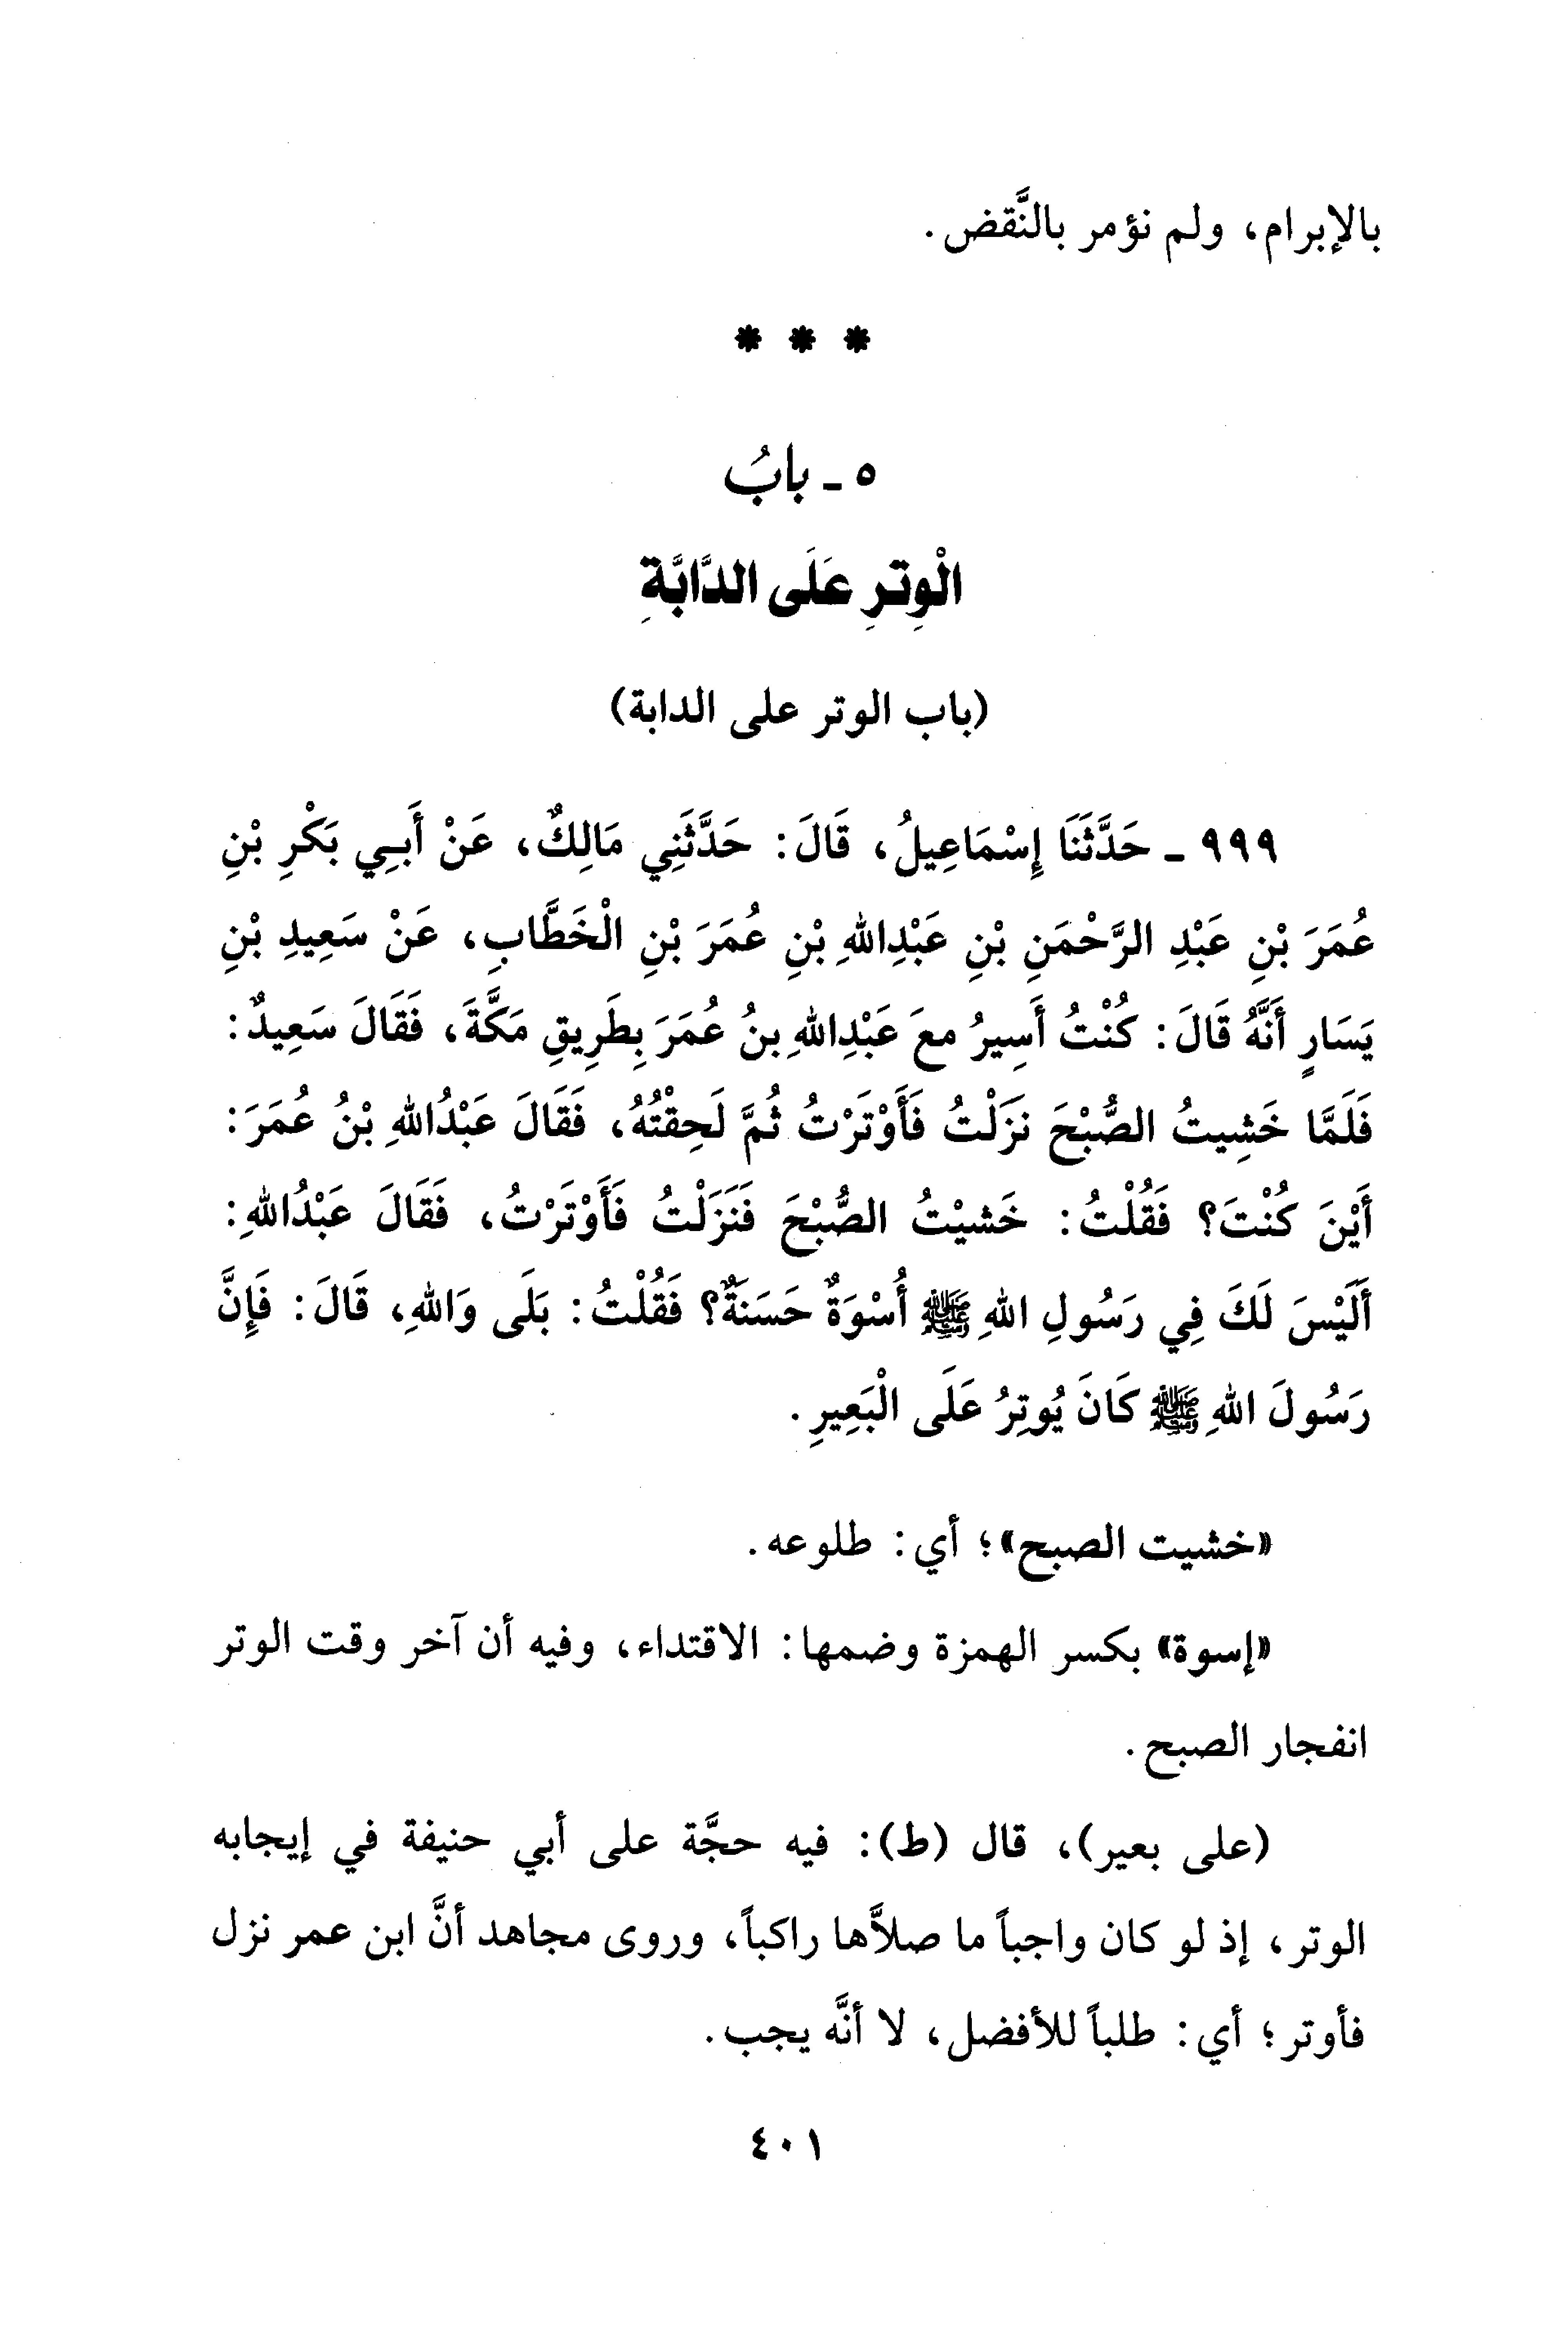 بالإبرام، ولم نؤمر بالنَّقض.
* * *
٥ ـ بابُ
الْوِترِ عَلَى الدَّابَّةِ
(باب الوتر على الدابة)
٩٩٩ ـ حَدَّثَنَا إِسْمَاعِيلُ، قَالَ: حَدَّثَنِي مَالِكٌ، عَنْ أَبِي بَكْرِ بْنِ
عُمَرَ بْنِ عَبْدِ الرَّحْمَنِ بْنِ عَبْدِاللهِ بْنِ عُمَرَ بْنِ الْخَطَّابِ، عَنْ سَعِيدِ بْنِ
يَسَارٍ أَنَّهُ قَالَ: كُنْتُ أَسِيرُ معَ عَبْدِاللهِ بنُ عُمَرَ بِطَرِيقِ مَكَّةَ، فَقَالَ سَعِيدٌ:
فَلَمَّا خَشِيتُ الصُّبْحَ نَزَلْتُ فَأَوْتَرْتُ ثُمَّ لَحِقْتُهُ، فَقَالَ عَبْدُاللهِ بْنُ عُمَرَ:
أَيْنَ كُنْتَ؟ فَقُلْتُ: خَشيْتُ الصُّبْحَ فَنَزَلْتُ فَأَوْتَرْتُ، فَقَالَ عَبْدُاللهِ:
أَلَيْسَ لَكَ فِي رَسُولِ اللهِ ﷺ أُسْوَةٌ حَسَنَةٌ؟ فَقُلْتُ: بَلَى وَاللهِ، قَالَ: فَإِنَّ
رَسُولَ اللهِ ﷺ كَانَ يُوتِرُ عَلَى الْبَعِيرِ.
«خشيت الصبح»؛ أي: طلوعه.
«إسوة» بكسر الهمزة وضمها: الاقتداء، وفيه أن آخر وقت الوتر
انفجار الصبح.
(على بعير)، قال (ط): فيه حجَّة على أبي حنيفة في إيجابه
الوتر، إذ لو كان واجباً ما صلاَّها راكباً، وروى مجاهد أنَّ ابن عمر نزل
فأوتر؛ أي: طلباً للأفضل، لا أنَّه يجب.
٤٠١